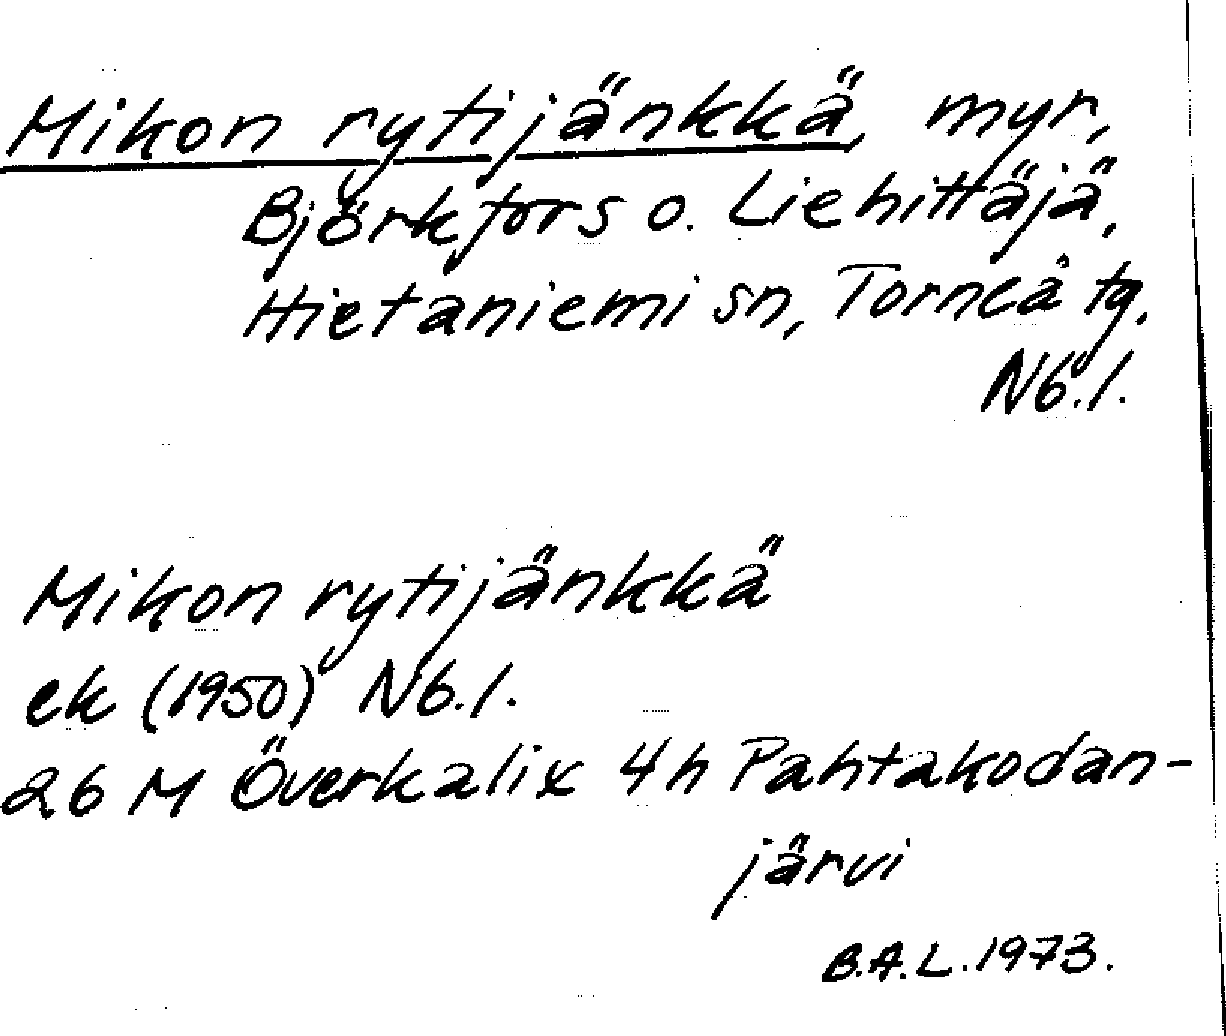 Mikon rytijänkkä, myr,
Björkfors o. Liehittäjä,
Hietaniemi sn, Torneå tg.
Nb.l.
Mikon rytijänkkä
ek (1950) Nb.l.
26 M Överkalix 4h Pahtakodan-
järvi
B.A.L. 1973.